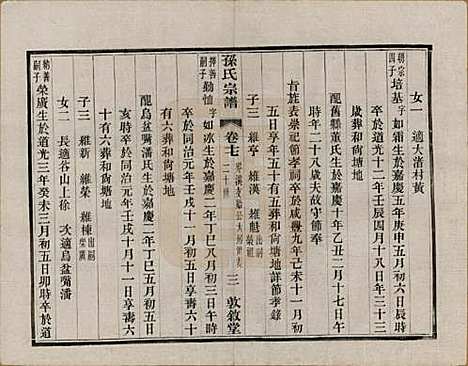 女一 適大渚村黃
朝宗四子 培基 字如 生於嘉慶五年庚申五月初六日辰時
卒於道光十二年壬辰四月十七日年三十三
配舊縣董氏生於嘉慶十年乙丑二月十七日
時年二十八歲夫故守節奉
旨旌表崇祀節孝祠卒於咸豐九年己未十一月初
五日享年五十有五葬和尙塘地詳節孝錄
子三 維亭 維漢 維魁 出嗣榮組
孫氏宗譜 卷七 三 敦敘堂
擇善嗣子 勤恤 字如冰生於嘉慶二年丁巳八月初三日午時
卒於同治元年壬戌十一月初八日享壽六十
有六葬和尙塘地
配烏盆嶴潘氏生於嘉慶二年丁巳五月初五日
亥時卒於同治元年壬戌十月十一日享壽六
十有六葬和尙塘地
子三 維新 維榮 維棟 出嗣榮廣
女二 長適谷山上徐 次適烏盆嶴潘
精善嗣子 榮廣生於道光三年癸未三月初五日卯時卒於道